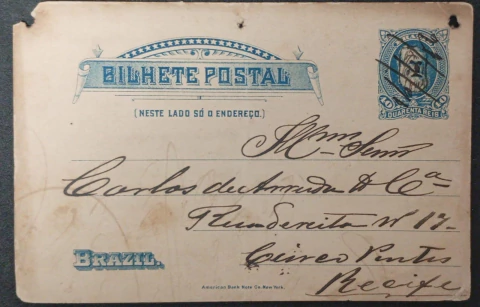 BILHETE POSTAL
(NESTE LADO SÓ O ENDEREÇO.)
40 40
QUARENTA REIS
Illmo Senr
Carlos de Arruda & Ca
Rua Direita Nº 17
Cinco Pontas
Recife
BRAZIL.
American Bank Note Co. New York.